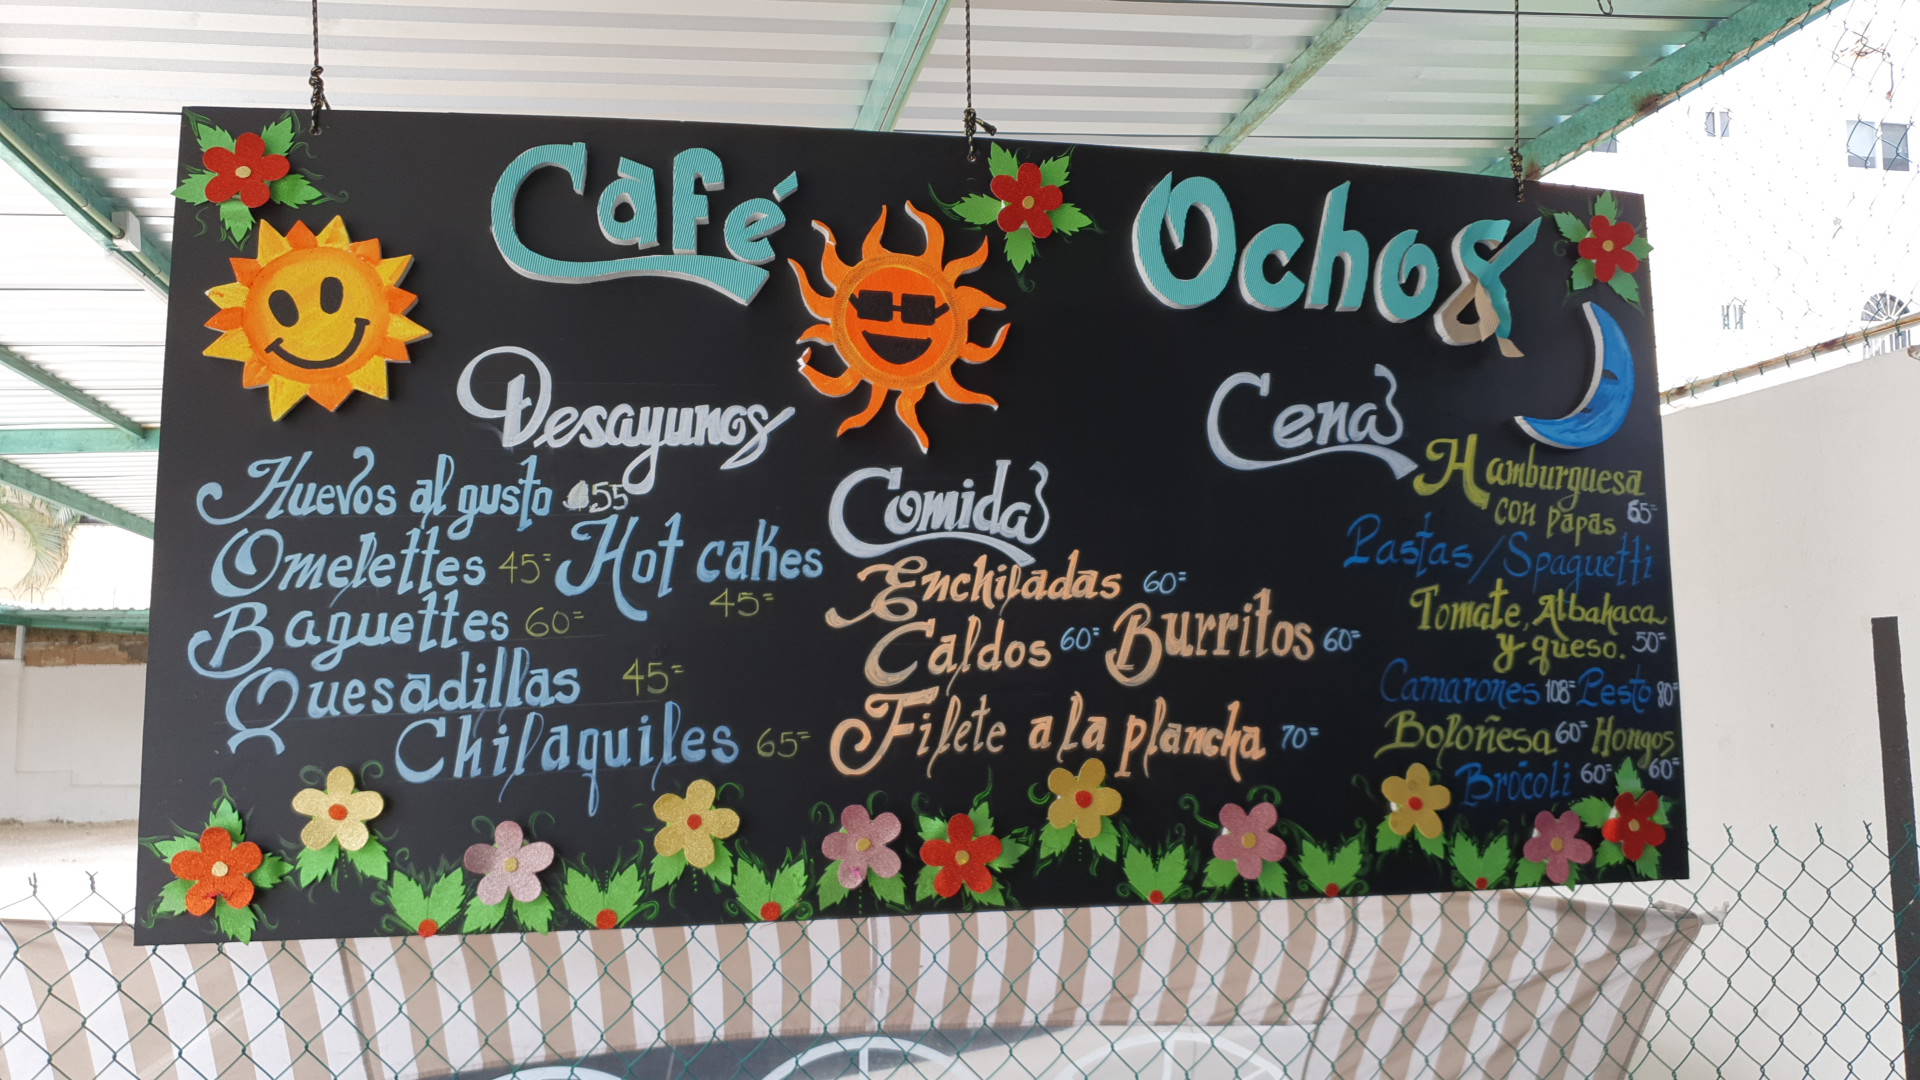 Café Ocho 8
Desayunos
Huevos al gusto 55
Omelettes 45=
Hot cakes
45=
Baguettes 60=
Quesadillas 45=
Chilaquiles 65=
Comida
Enchiladas 60=
Caldos 60= Burritos 60=
Filete a la plancha 70=
Cena
Hamburguesa
con papas 65=
Pastas/Spaguetti
Tomate, Albahaca
y queso. 50=
Camarones 108= Pesto 80=
Boloñesa 60= Hongos
60=
Brócoli 60=